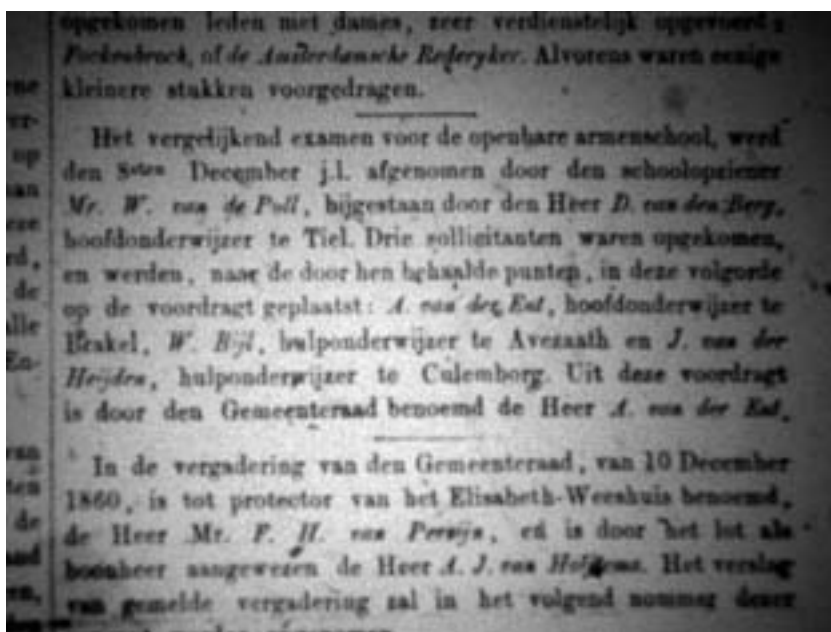 opgekomen leden met dames, zeer verdienstelijk opgevoerd:
Fockenbrock, of de Amsterdamsche Rederyker. Alvorens waren eenige
kleinere stukken voorgedragen.
Het vergelijkend examen voor de openbare armenschool, werd
den 8sten December j.l. afgenomen door den schoolopziener
Mr. W. van de Poll, bijgestaan door den Heer D. van den Berg,
hoofdonderwijzer te Tiel. Drie sollicitanten waren opgekomen,
en werden, naar de door hen behaalde punten, in deze volgorde
op de voordragt geplaatst: A. van der Ent, hoofdonderwijzer te
Brakel, W. Bijl, hulponderwijzer te Avezaath en J. van der
Heijden, hulponderwijzer te Culemborg. Uit deze voordragt
is door den Gemeenteraad benoemd de Heer A. van der Ent.
In de vergadering van den Gemeenteraad, van 10 December
1860, is tot protector van het Elisabeth-Weeshuis benoemd,
de Heer Mr. F. H. van en is door het lot als
boonheer aangewezen de Heer A. J. van Het verslag
van gemelde vergadering zal in het volgend nommer dezer